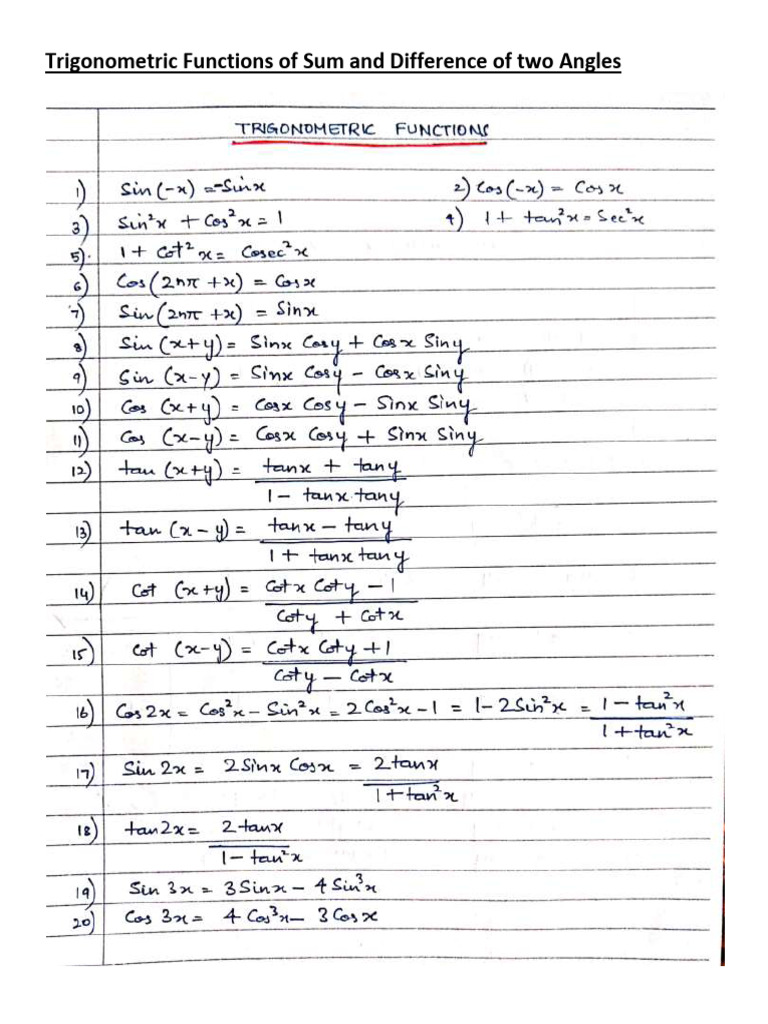 Trigonometric Functions of Sum and Difference of two Angles
TRIGONOMETRIC FUNCTIONS
1) Sin(-x) = -Sinx 2) Cos(-x) = Cosx
3) Sin²x + Cos²x = 1 4) 1 + tan²x = Sec²x
5). 1 + Cot²x = Cosec²x
6) Cos(2nπ + x) = Cosx
7) Sin(2nπ + x) = Sinx
8) Sin(x+y) = Sinx Cosy + Cosx Siny
9) Sin (x-y) = Sinx Cosy - Cosx Siny
10) Cos (x+y) = Cosx Cosy - Sinx Siny
11) Cos (x-y) = Cosx Cosy + Sinx Siny
12) tan (x+y) = tanx + tany
1 - tanx tany
13) tan (x - y) = tanx - tany
1 + tanx tany
14) Cot (x+y) = Cotx Coty - 1
Coty + Cotx
15) Cot (x-y) = Cotx Coty + 1
Coty - Cotx
16) Cos2x = Cos²x - Sin²x = 2Cos²x - 1 = 1 - 2Sin²x = 1 - tan²x
1 + tan²x
17) Sin 2x = 2Sinx Cosx = 2tanx
1 + tan²x
18) tan2x = 2tanx
1 - tan²x
19) Sin 3x = 3Sinx - 4Sin³x
20) Cos 3x = 4Cos³x - 3Cosx